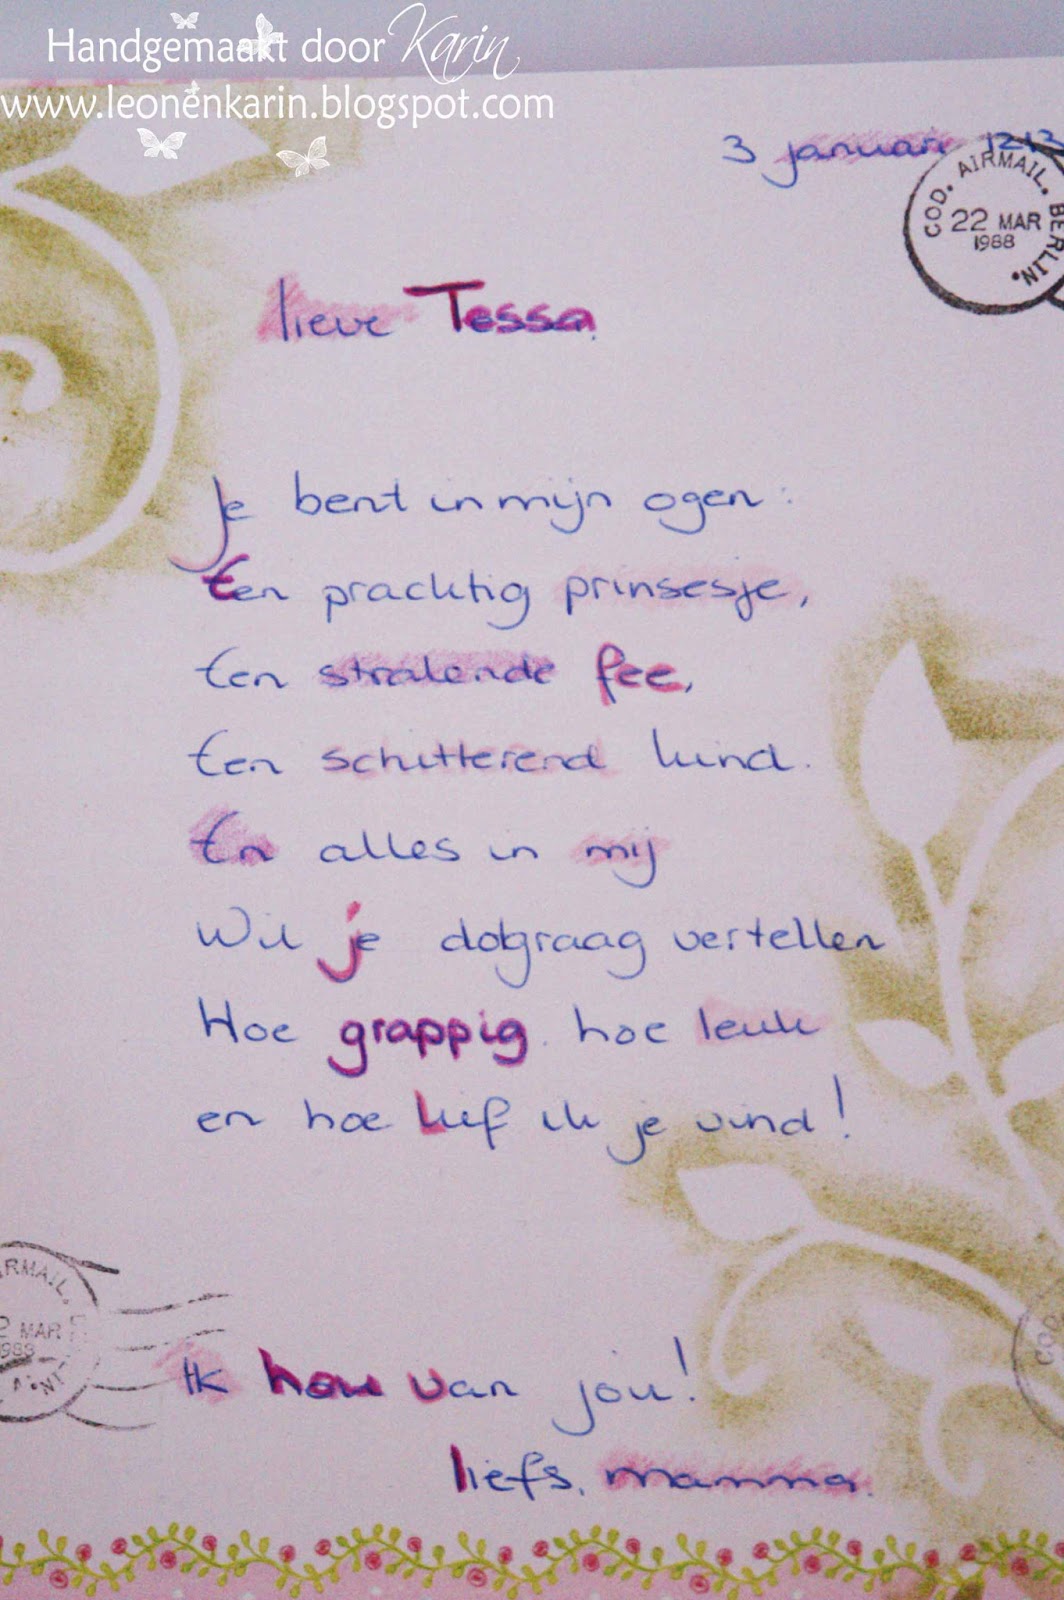 Handgemaakt door Karin
www.leonenkarin.blogspot.com
3 januari
COD. AIRMAIL. BERLIN.
22 MAR
1988
lieve Tessa,
Je bent in mijn ogen:
Een prachtig prinsesje,
Een stralende fee,
Een schitterend kind.
En alles in mij
Wil je dolgraag vertellen
Hoe grappig, hoe leuk
en hoe lief ik je vind!
AIRMAIL.
22 MAR
1988
Ik hou van jou!
liefs, mamma.